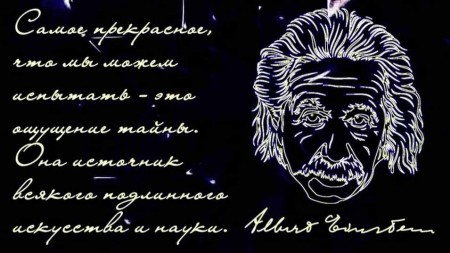 Самое прекрасное,
что мы можем
испытать - это
ощущение тайны.
Она источник
всякого подлинного
искусства и науки.
Albert Einstein